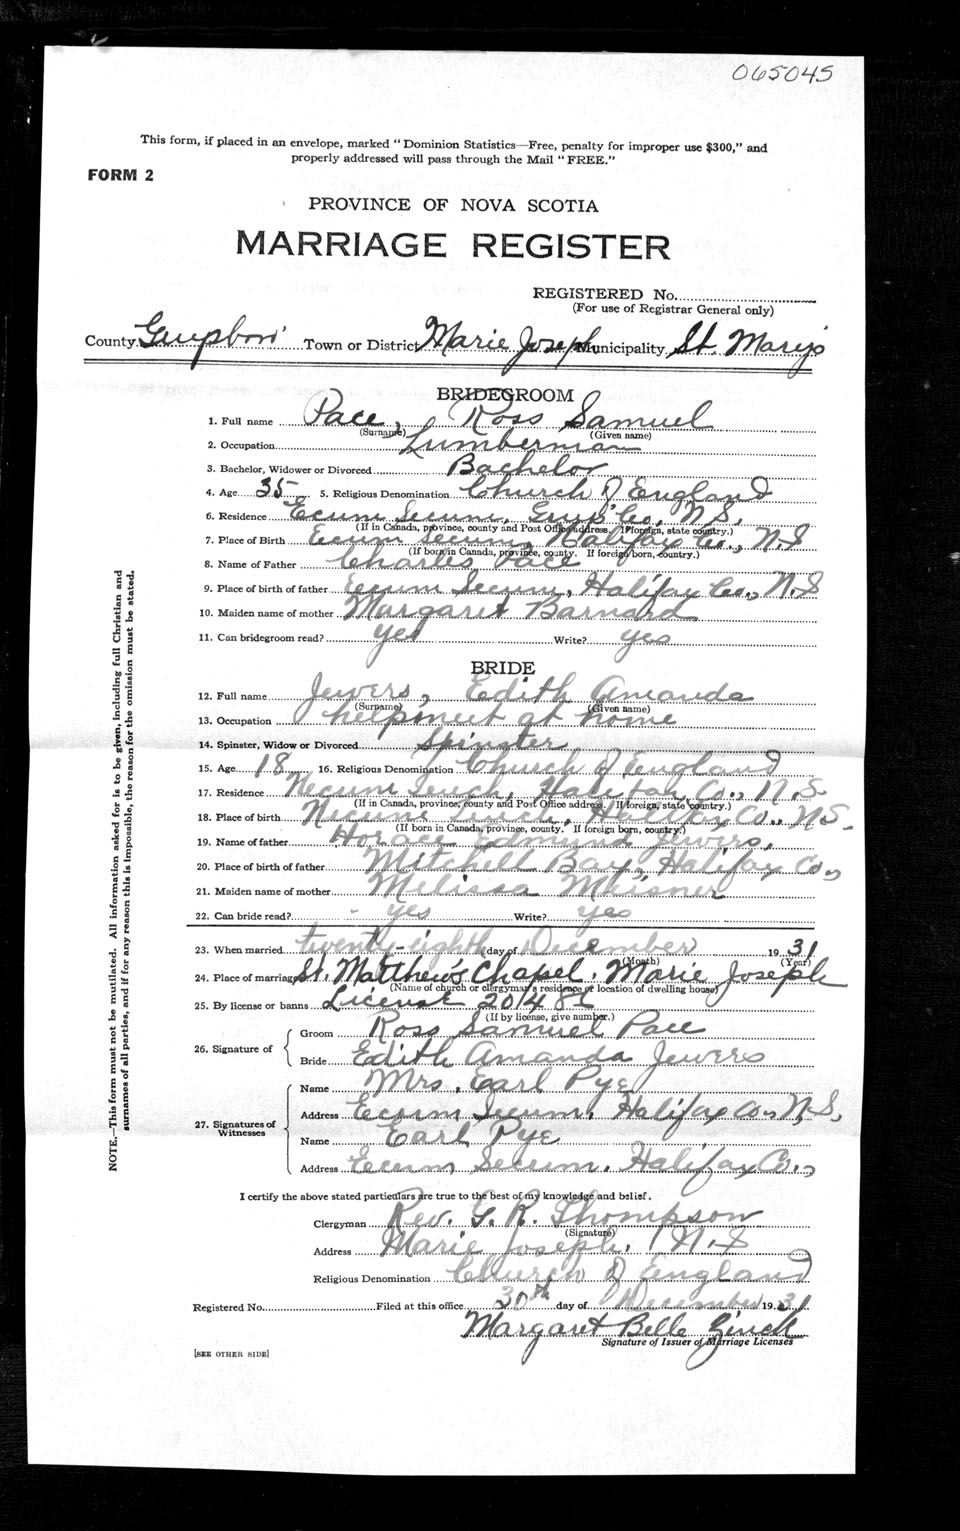 065045
This form, if placed in an envelope, marked "Dominion Statistics—Free, penalty for improper use $300," and
properly addressed will pass through the Mail "FREE."
FORM 2
PROVINCE OF NOVA SCOTIA
MARRIAGE REGISTER
REGISTERED No.
(For use of Registrar General only)
County Guysboro' Town or District Marie Joseph Municipality St. Mary's
BRIDEGROOM
1. Full name Pace, Ross Samuel
(Surname) (Given name)
2. Occupation Lumberman
3. Bachelor, Widower or Divorced Bachelor
4. Age 35 5. Religious Denomination Church of England
6. Residence Ecum Secum, Guys' Co., N.S.
(If in Canada, province, county and Post Office address. If foreign, state country.)
7. Place of Birth Ecum Secum, Halifax Co., N.S
(If born in Canada, province, county. If foreign born, country.)
8. Name of Father Charles Pace
9. Place of birth of father Ecum Secum, Halifax Co., N.S
10. Maiden name of mother Margaret Barnard
11. Can bridegroom read? yes Write? yes
BRIDE
12. Full name Jewers, Edith Amanda
(Surname) (Given name)
13. Occupation helpmeet at home
14. Spinster, Widow or Divorced Spinster
15. Age 18 16. Religious Denomination Church of England
17. Residence Necum Teuch, Halifax Co., N.S.
(If in Canada, province, county and Post Office address. If foreign, state country.)
18. Place of birth Necum Teuch, Halifax Co., N.S.
(If born in Canada, province, county. If foreign born, country.)
19. Name of father Horace Edmund Jewers,
20. Place of birth of father Mitchell Bay, Halifax Co.,
21. Maiden name of mother Melissa Meisner
22. Can bride read? yes Write? yes
23. When married twenty-eighth day of December 1931
(Month) (Year)
24. Place of marriage St. Matthew's Chapel. Marie Joseph
(Name of church or clergyman's residence or location of dwelling house)
25. By license or banns License
(If by license, give number.)
26. Signature of
Groom Ross Samuel Pace
Bride Edith Amanda Jewers
27. Signatures of Witnesses
Name Mrs. Earl Pye
Address Ecum Secum, Halifax Co., N.S.
Name Earl Pye
Address Ecum Secum. Halifax Co.,
I certify the above stated particulars are true to the best of my knowledge and belief.
Clergyman Rev. G. R. Thompson
(Signature)
Address Marie Joseph, N.S
Religious Denomination Church of England
Registered No. Filed at this office 30th day of December 1931.
Margaret Belle
Signature of Issuer of Marriage Licenses
[SEE OTHER SIDE]
NOTE.—This form must not be mutilated. All information asked for is to be given, including full Christian and
surnames of all parties, and if for any reason this is impossible, the reason for the omission must be stated.